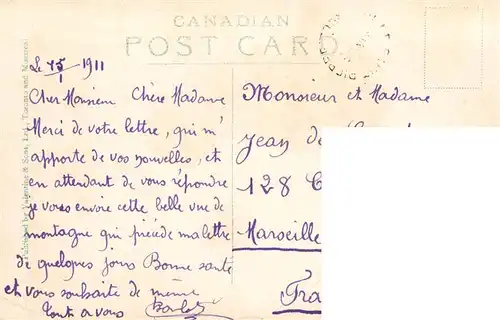 CANADIAN
POST CARD
Le 15/1 1911
Cher Monsieur Chère Madame
Merci de votre lettre, qui m'
apporte de vos nouvelles, et
en attendant de vous répondre
je vous envoie cette belle vue de
montagne qui précède ma lettre
de quelques jours Bonne santé
et vous souhaite de même
Tout a vous
Monsieur et Madame
Jean de
128
Marseille
Fra
Published by Valentine & Sons, Ltd., Toronto and Montreal